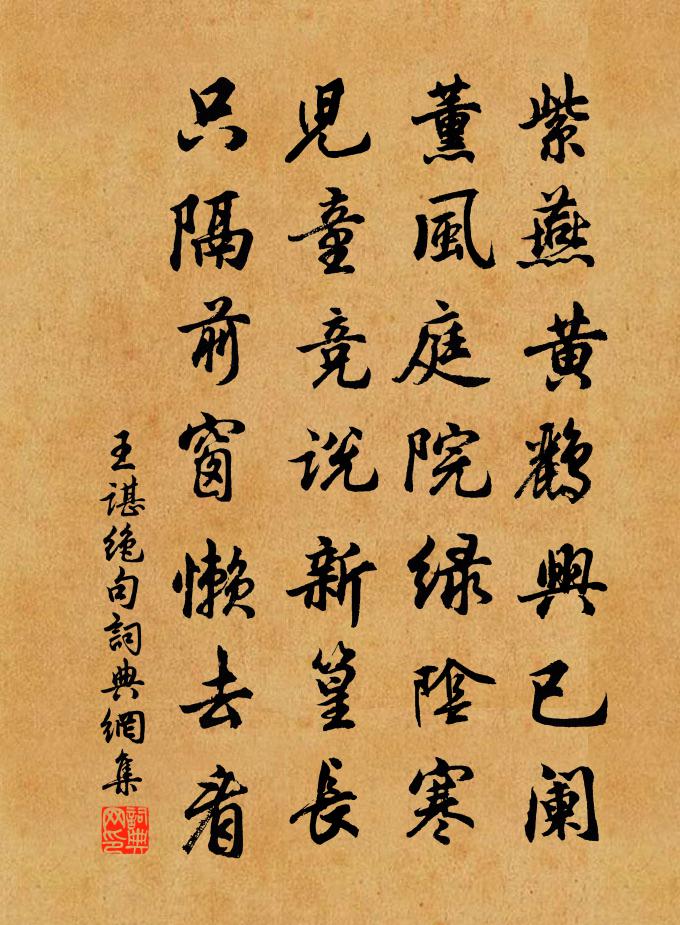 紫燕黄鸝興已阑
薰風庭院緑陰寒
児童竞说新篁長
只隔前窗懒去看
王谌绝句詞典網集
詞典网印